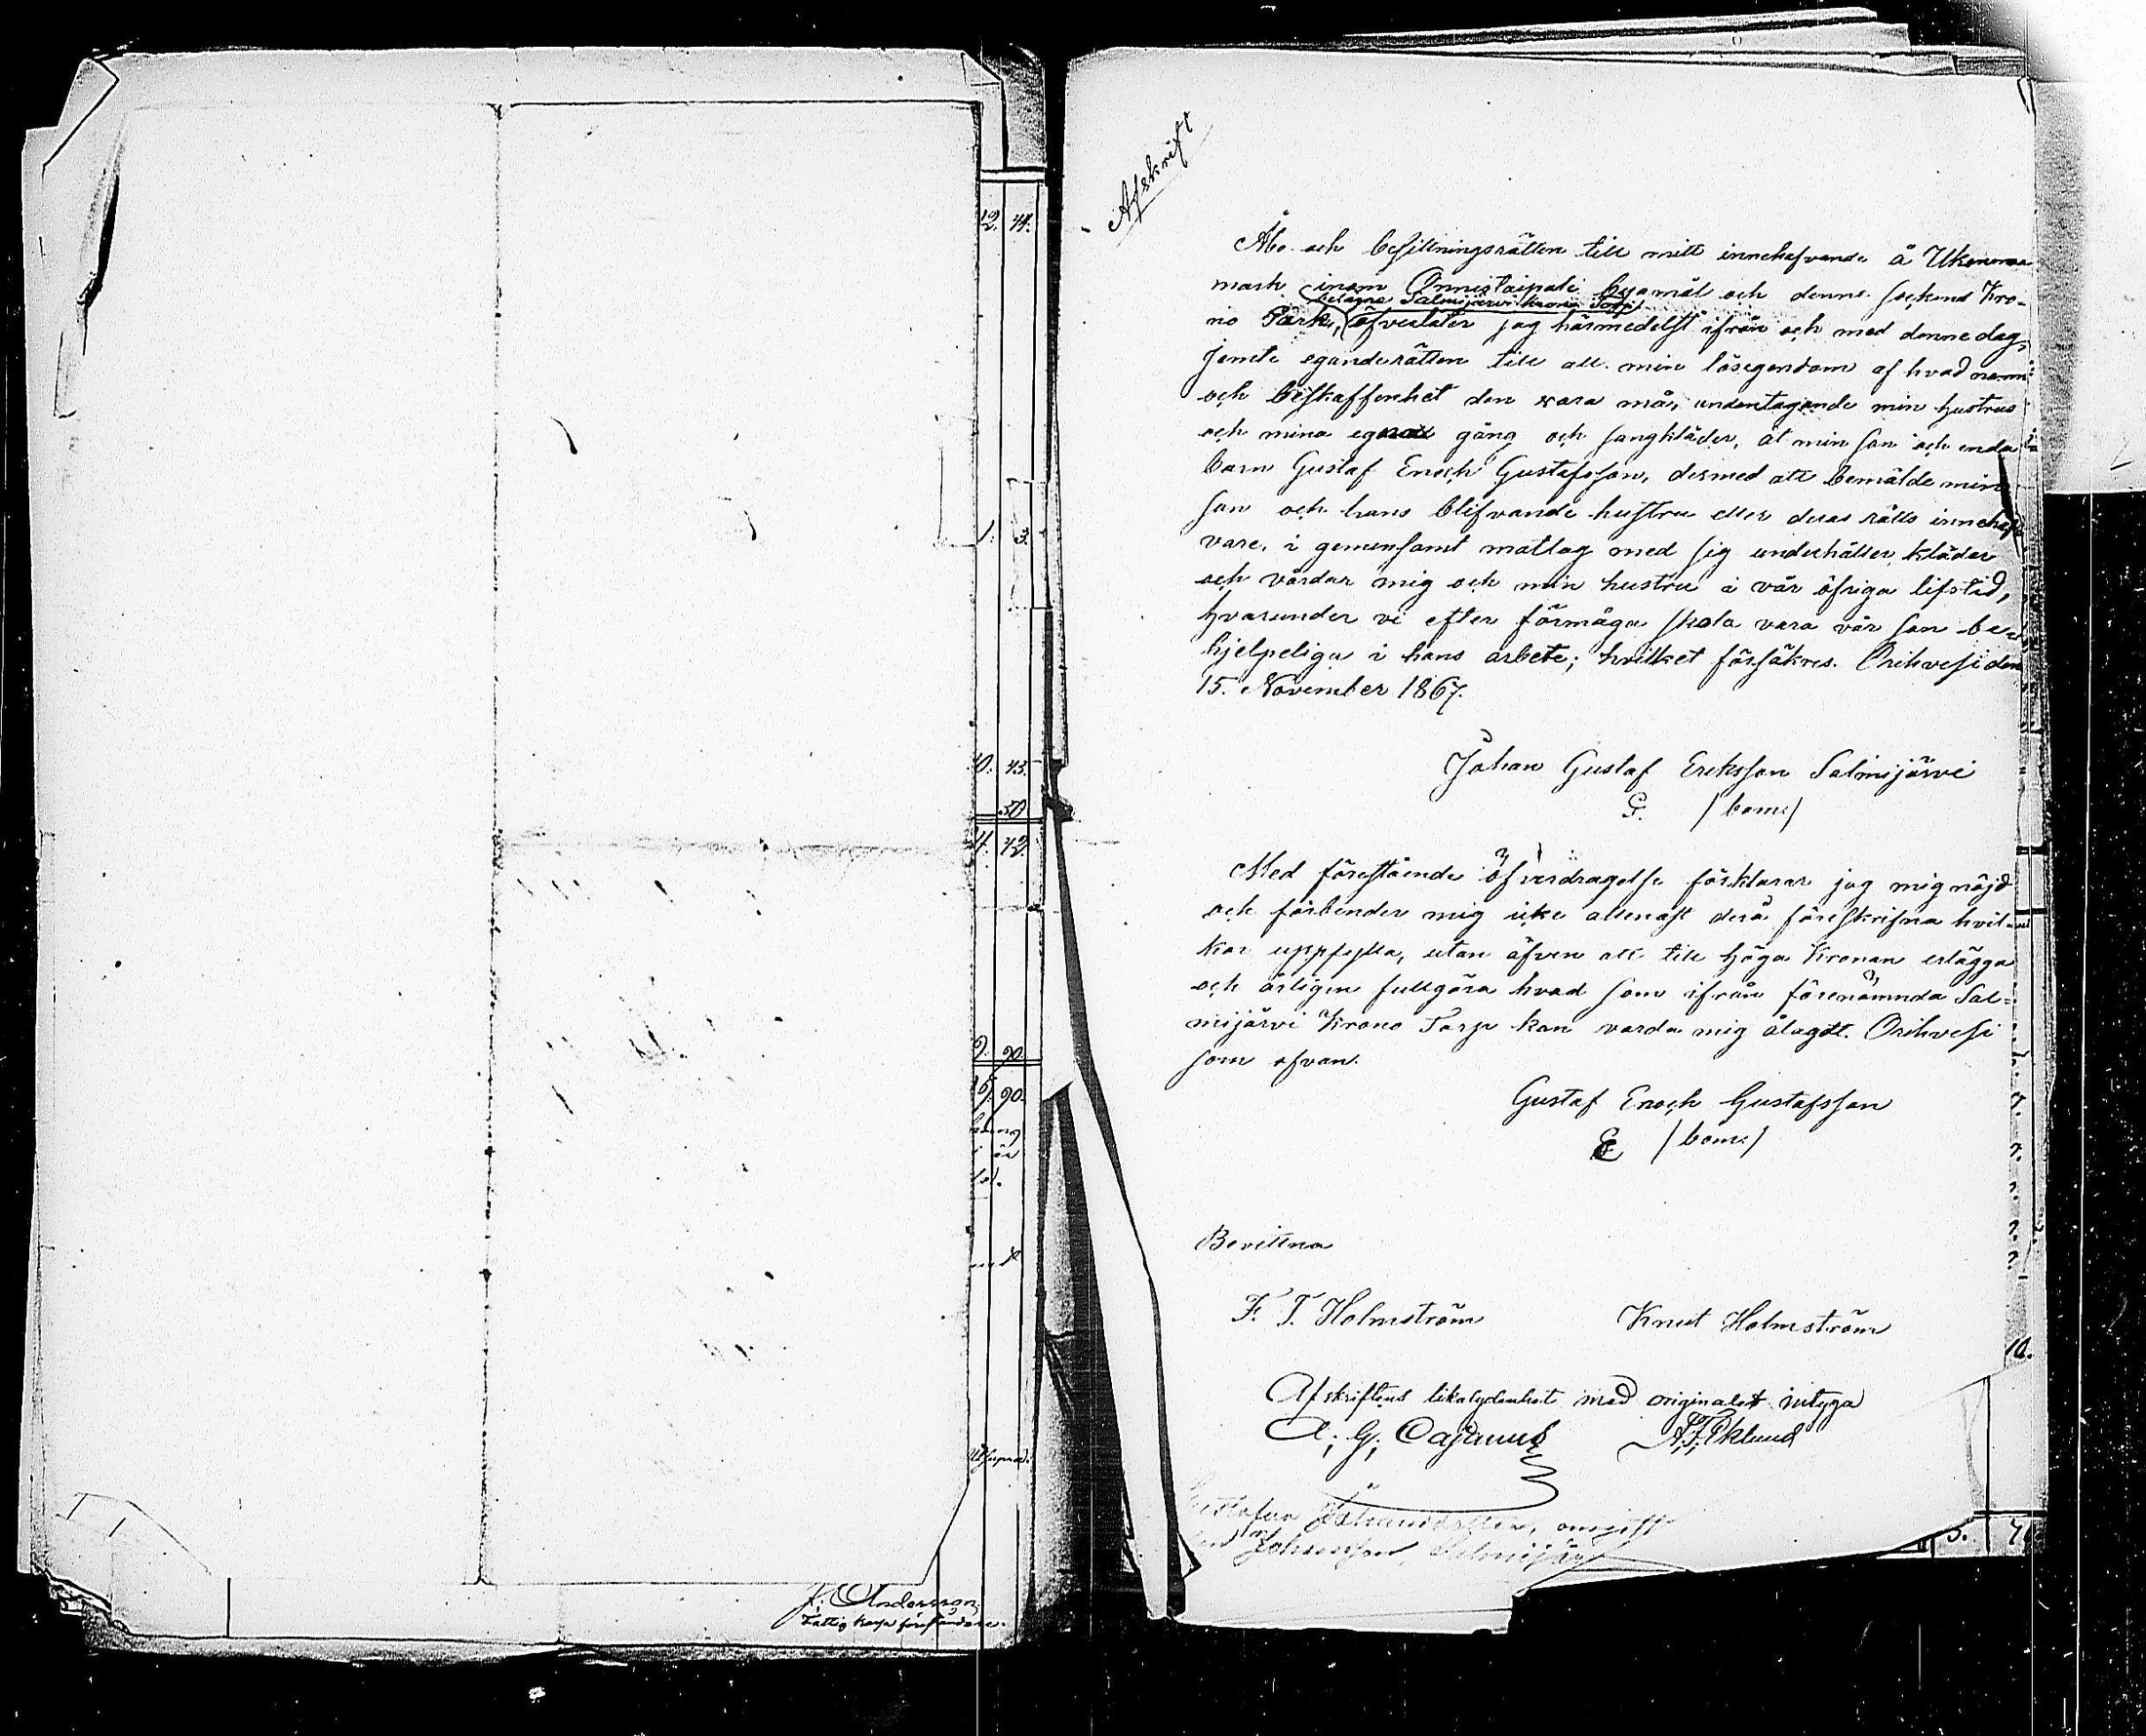 Afskrift
Åbo och besittningsrätten till mitt innehafvande å Ukonmaa
mark inom Onnistaipale byamål och denne sockens Kro-
belägna Salmijärvi krono Torp
no Park, öfverlåter jag härmedelst ifrån och med denne dag,
jemte eganderätten till all min lösegendom af hvad namn
och beskaffenhet den vara må, undentagande min hustrus
och mina egna gång och sängkläder, åt min son och enda
barn Gustaf Enoch Gustafsson, dermed att bemälde min
son och hans blifvande hustru eller deras rätts innehaf-
vare, i gemensamt matlag med sig underhåller, kläder
och vårdar mig och min hustru i vår öfriga lifstid,
hvarunder vi efter förmåga skola vara vår son be-
hjelpeliga i hans arbete; hvilket försäkras. Orihvesi den
15. November 1867.
Johan Gustaf Eriksson Salmijärvi
G. /bom:/
Med förestående öfverdragelse förklarar jag mig nöjd
och förbinder mig icke allenast derå föreskrifna hvil-
kor uppfylla, utan äfven att till Höga Kronan erlägga
och årligen fullgöra hvad som ifrån förenämnda Sal-
mijärvi Krono Torp kan varda mig ålagdt. Orihvesi
som ofvan.
Gustaf Enoch Gustafsson
E /bom:/
Bevittna
F. T. Holmström Knut Holmström
Afskriftens likalydenhet med originalet intyga
A. G. Cajanus A. F. Eklund
12. 44.
1. 3.
10. 43.
50
42
9. 90
90.
J. Andersson
10.